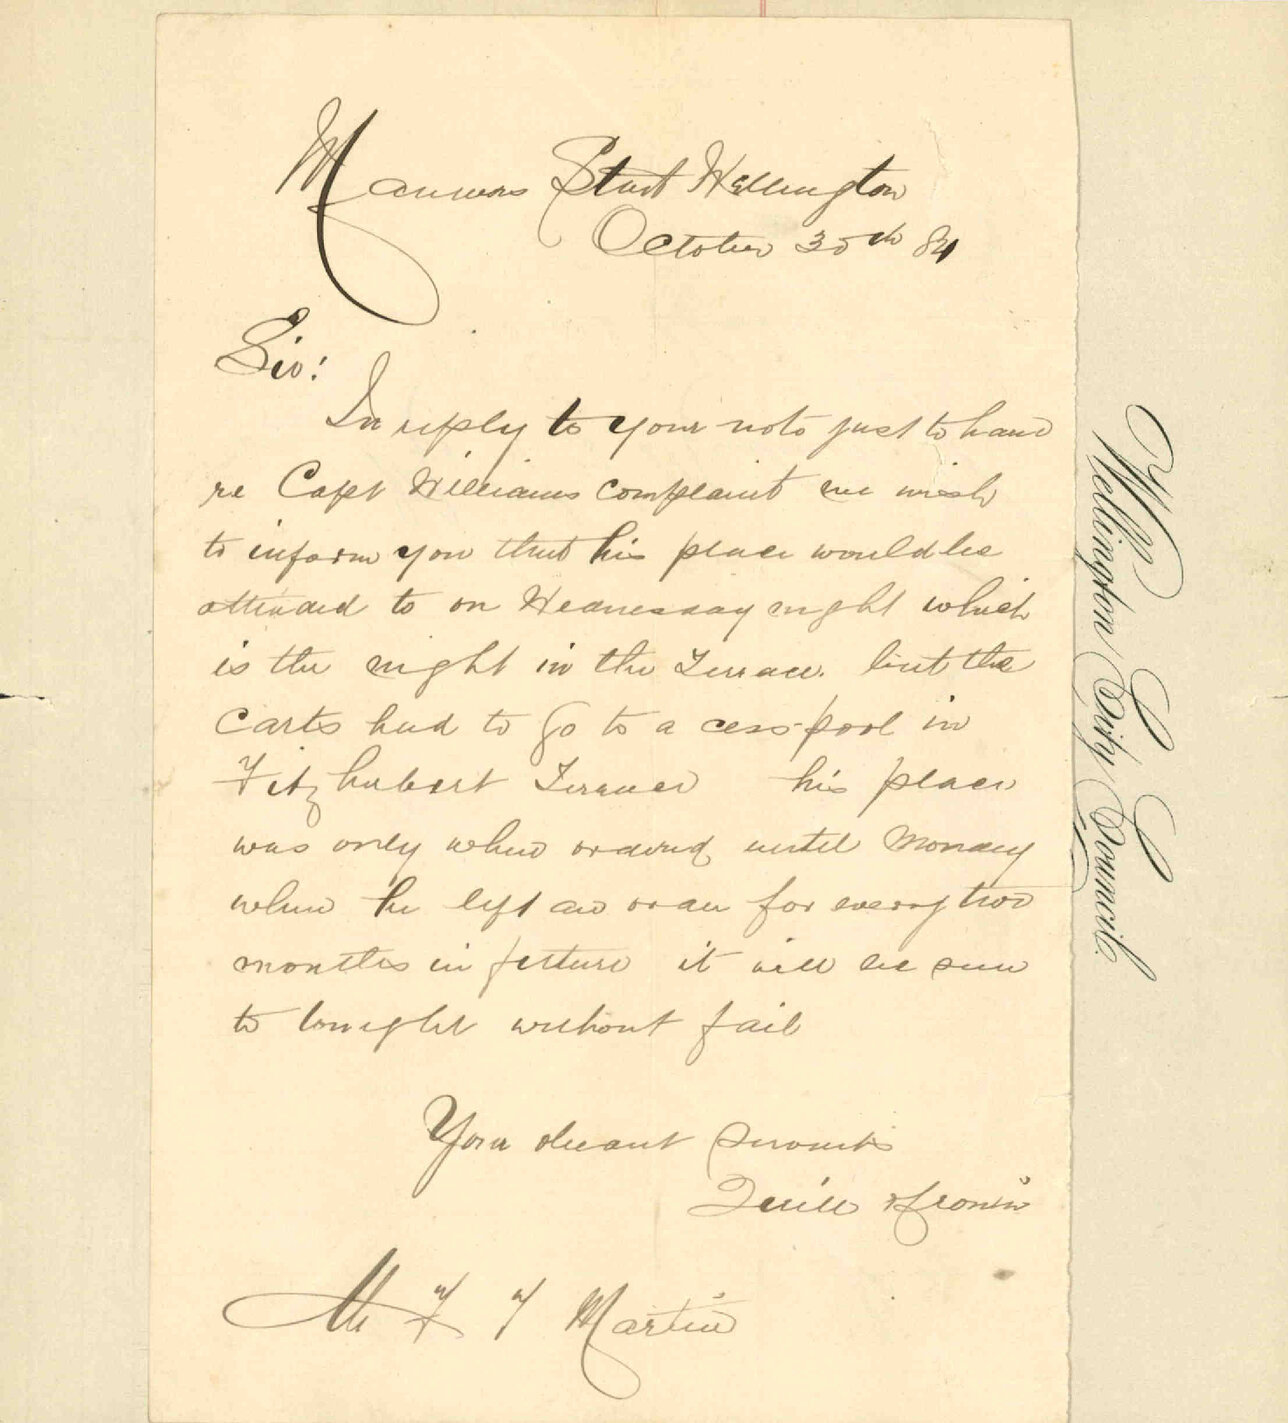 Manners Street Wellington
October 30th 84
Sir:
In reply to your note just to hand
re Capt Williams complaint we wish
to inform you that his place would be
attended to on Wednesday night which
is the night in the Terrace. but the
carts had to go to a cess-pool in
Fitzhubert Terrace his place
was only when orderd until Monday
when he left an order for every two
months in future it will be seen
to tonight without fail
Your obedient servants
Martin
Wellington City Council.